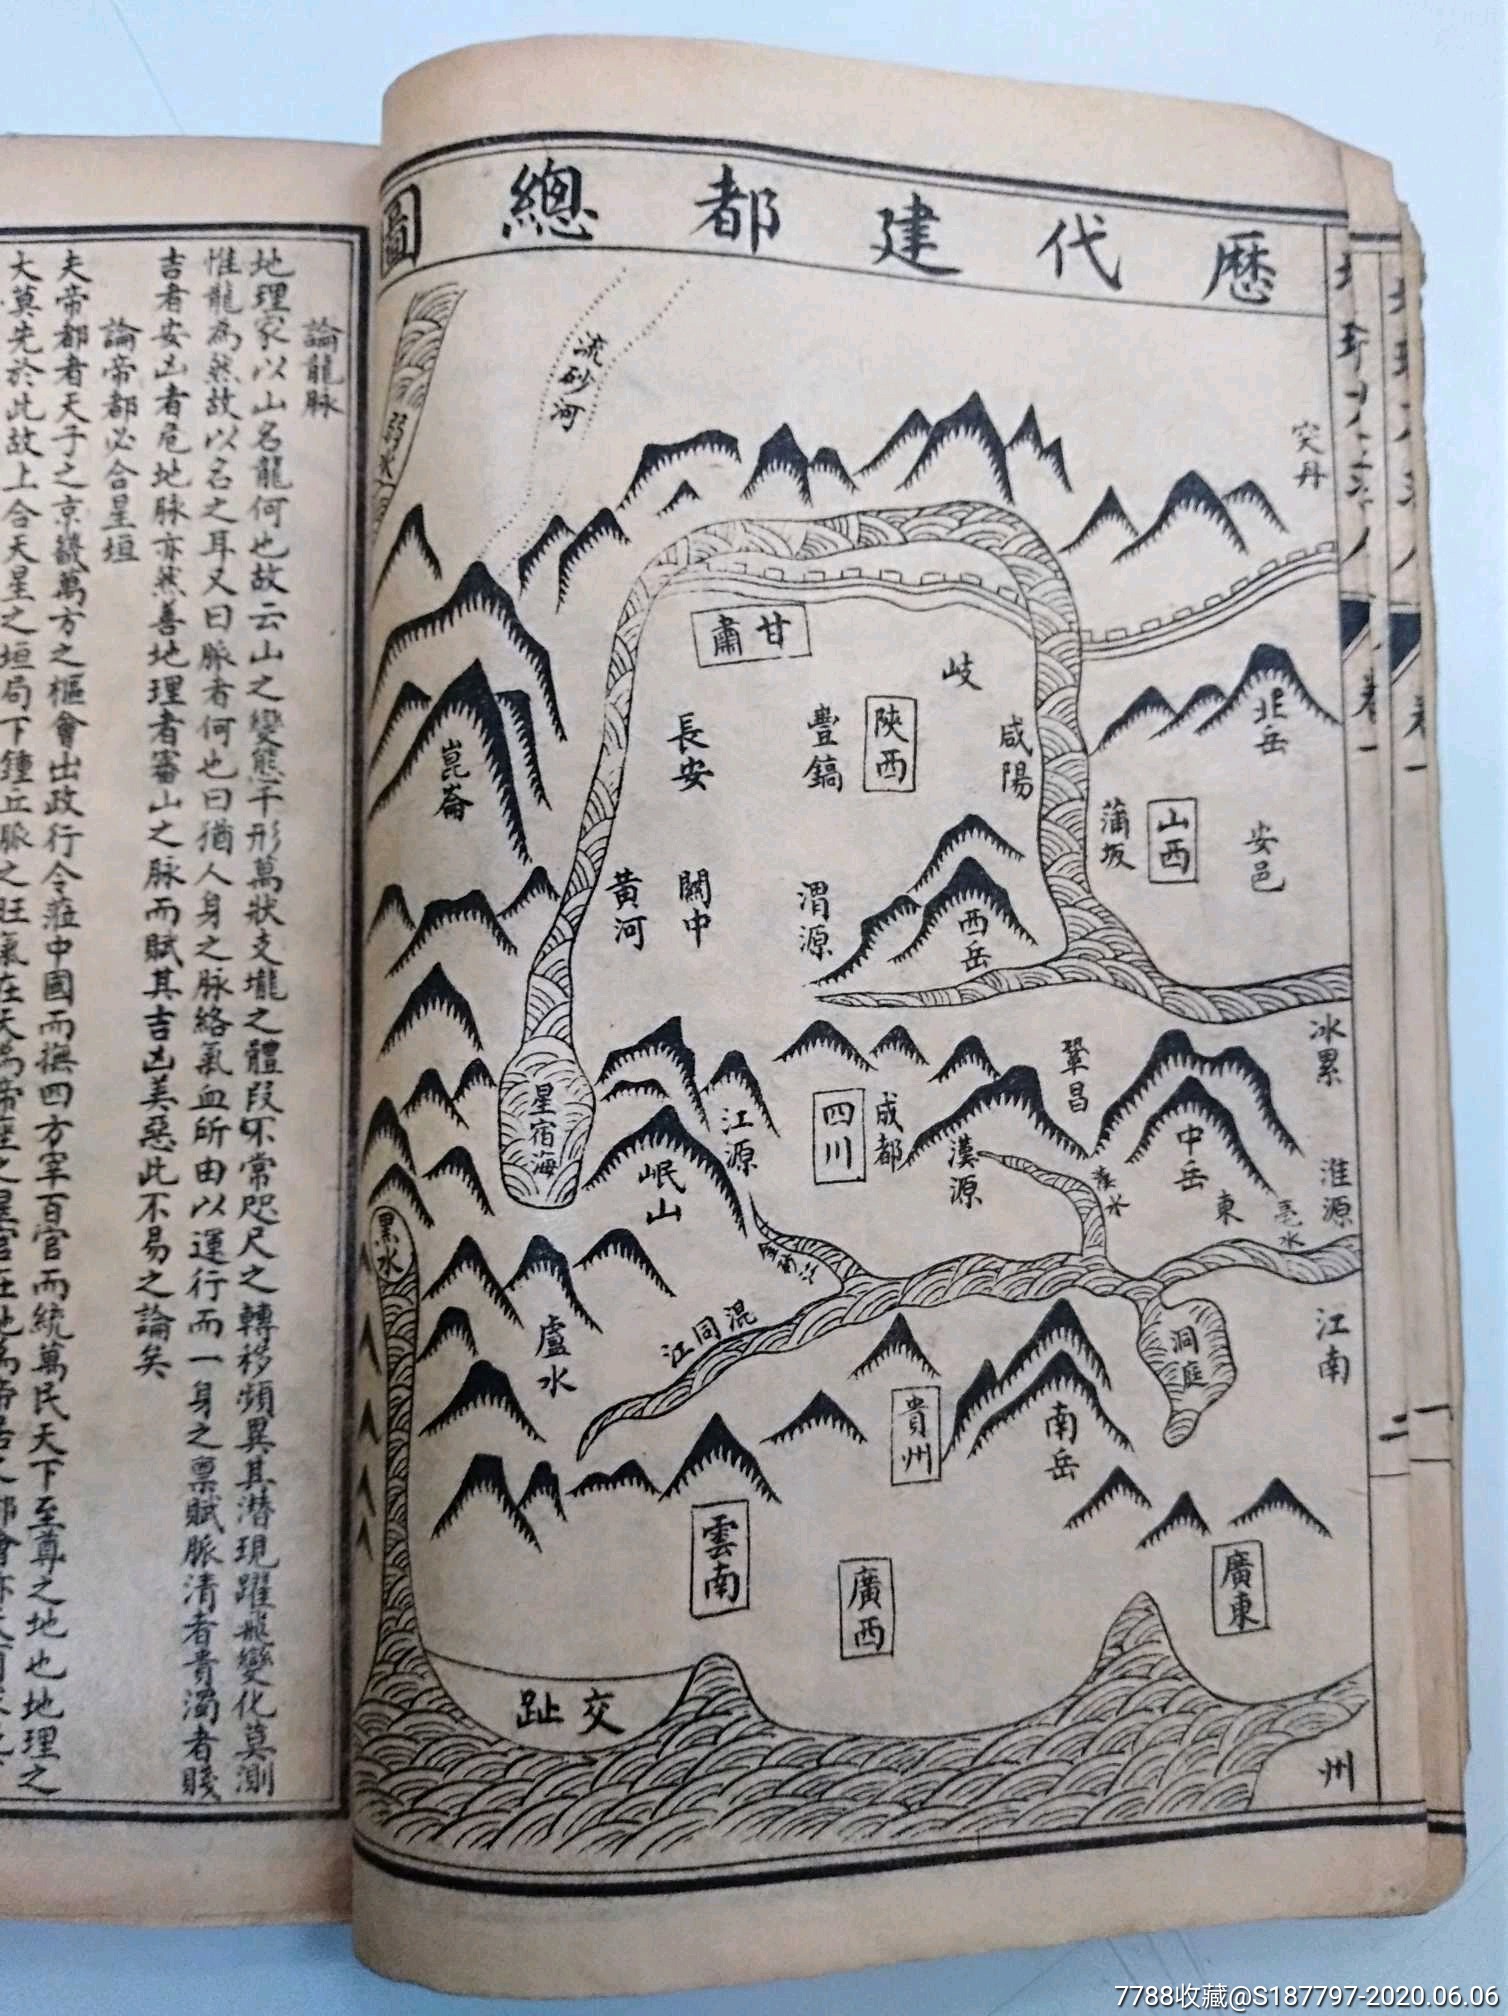 歷代建都總圖
突丹
流砂河
弱水
甘肅
岐
陝西
豐鎬
長安
咸陽
北岳
蒲坂
山西
安邑
崑崙
黃河
關中
渭源
西岳
冰累
鞏昌
星宿海
江源
四川
成都
漢源
中岳
淮源
岷山
東
亳水
黑水
混同江
盧水
洞庭
江南
貴州
南岳
雲南
廣西
廣東
交趾
州
卷一
二
一
論龍脉
地理家以山名龍何也故云山之變態千形萬狀支壠之體段不常咫尺之轉移頻異其潛現躍飛變化莫測
惟龍為然故以名之耳又曰脈者何也曰猶人身之脉絡氣血所由以運行而一身之禀賦脈清者貴濁者賤
吉者安凶者危地脉亦然善地理者審山之脉而賦其吉凶美惡此不易之論矣
論帝都必合星垣
夫帝都者天子之京畿萬方之樞會出政行令蒞中國而撫四方宰百官而統萬民天下至尊之地也地理之
大莫先於此故上合天星之垣局下鍾丘脈之旺氣在天為帝座之星宮在地為帝居之都會亦
7788收藏@S187797-2020.06.06